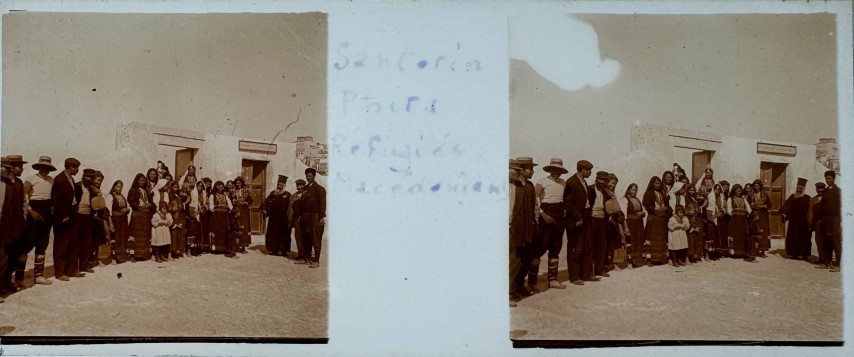 Santorin
Phira
Réfugiés
Macedoniens